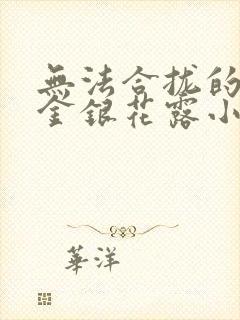 無法合拢的
金銀花露小
華洋